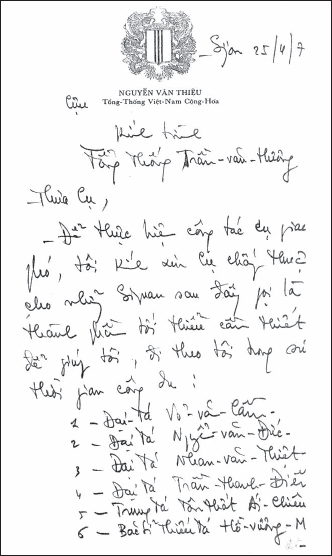 Sgon 25/4/7
NGUYỄN VĂN THIỆU
Tổng-Thống Việt-Nam Cộng-Hòa
Cựu
Kính trình
Tổng Thống Trần-văn-Hương
Thưa Cụ,
_ Để thực hiện công tác Cụ giao
phó, tôi kính xin Cụ chấp thuận
cho những Sĩ quan sau đây gọi là
thành phần tối thiểu cần thiết
để giúp tôi, đi theo tôi trong suốt
thời gian công du :
1 - Đại-Tá Võ-văn-Cầm-
2 - Đại Tá Nguyễn-văn-Đức-
3 - Đại Tá Nhan-văn-Thiệt-
4 - Đại Tá Trần-Thanh-Điền
5 - Trung Tá Tôn Thất Ái-Chiêu
6 - Bác sĩ Thiếu Tá Hồ-vương-M